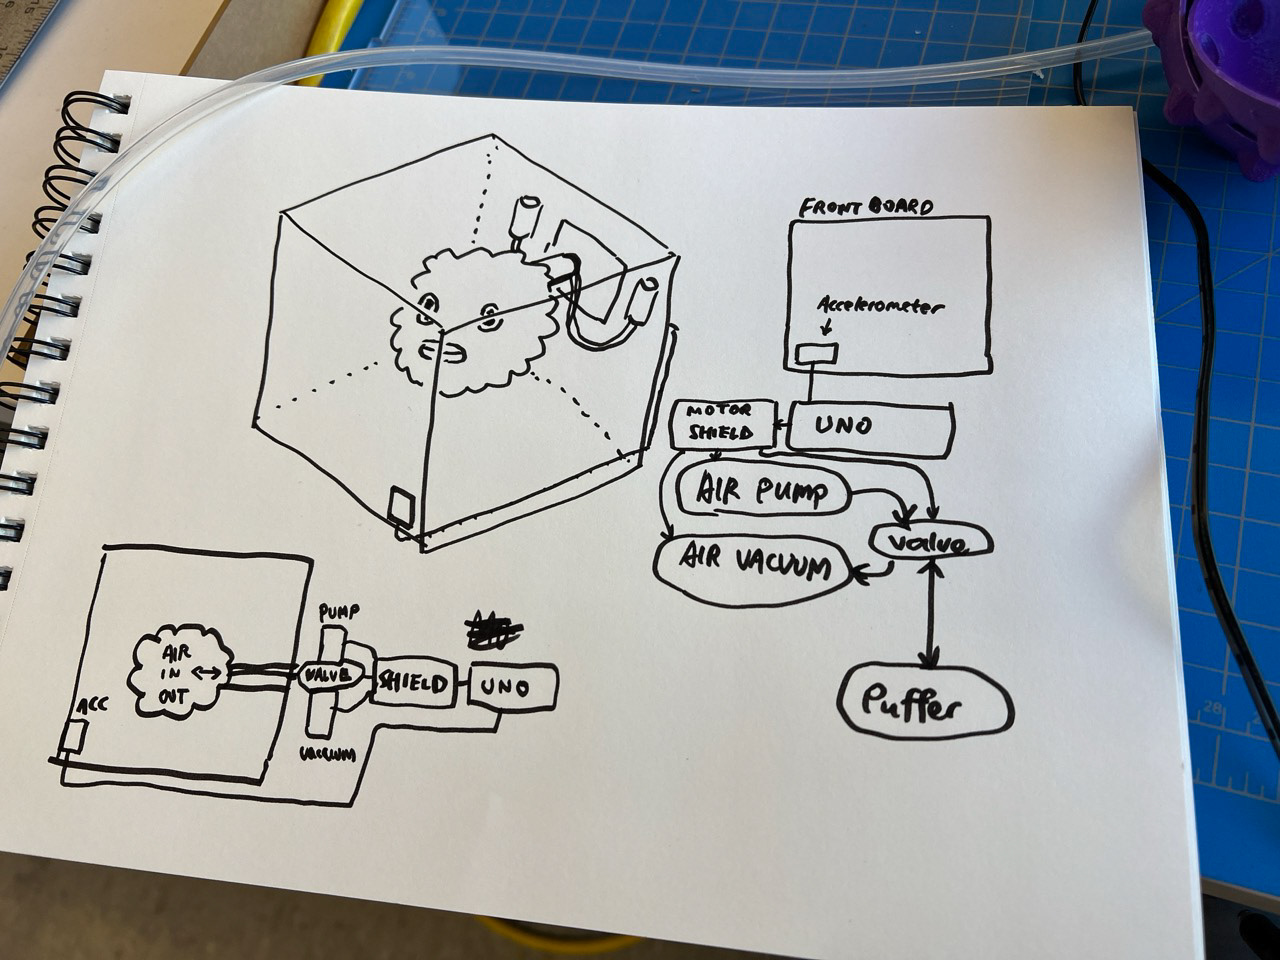 FRONT BOARD
Accelerometer
MOTOR
SHIELD
UNO
AIR PUMP
valve
AIR VACUUM
Puffer
PUMP
AIR
IN
OUT
VALVE
SHIELD
UNO
ACC
VACUUM
28